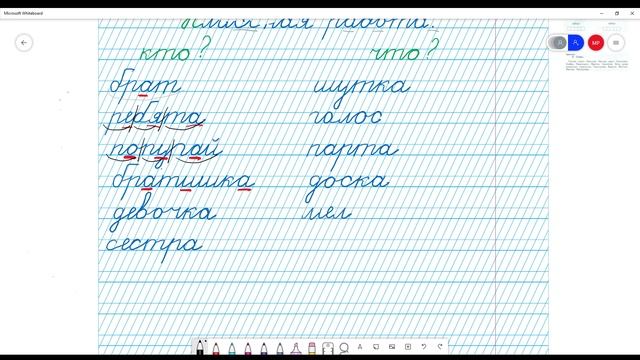 Microsoft Whiteboard
работа.
кто? что?
брат шутка
ребята голос
попугай парта
братишка доска
девочка мел
сестра
MP